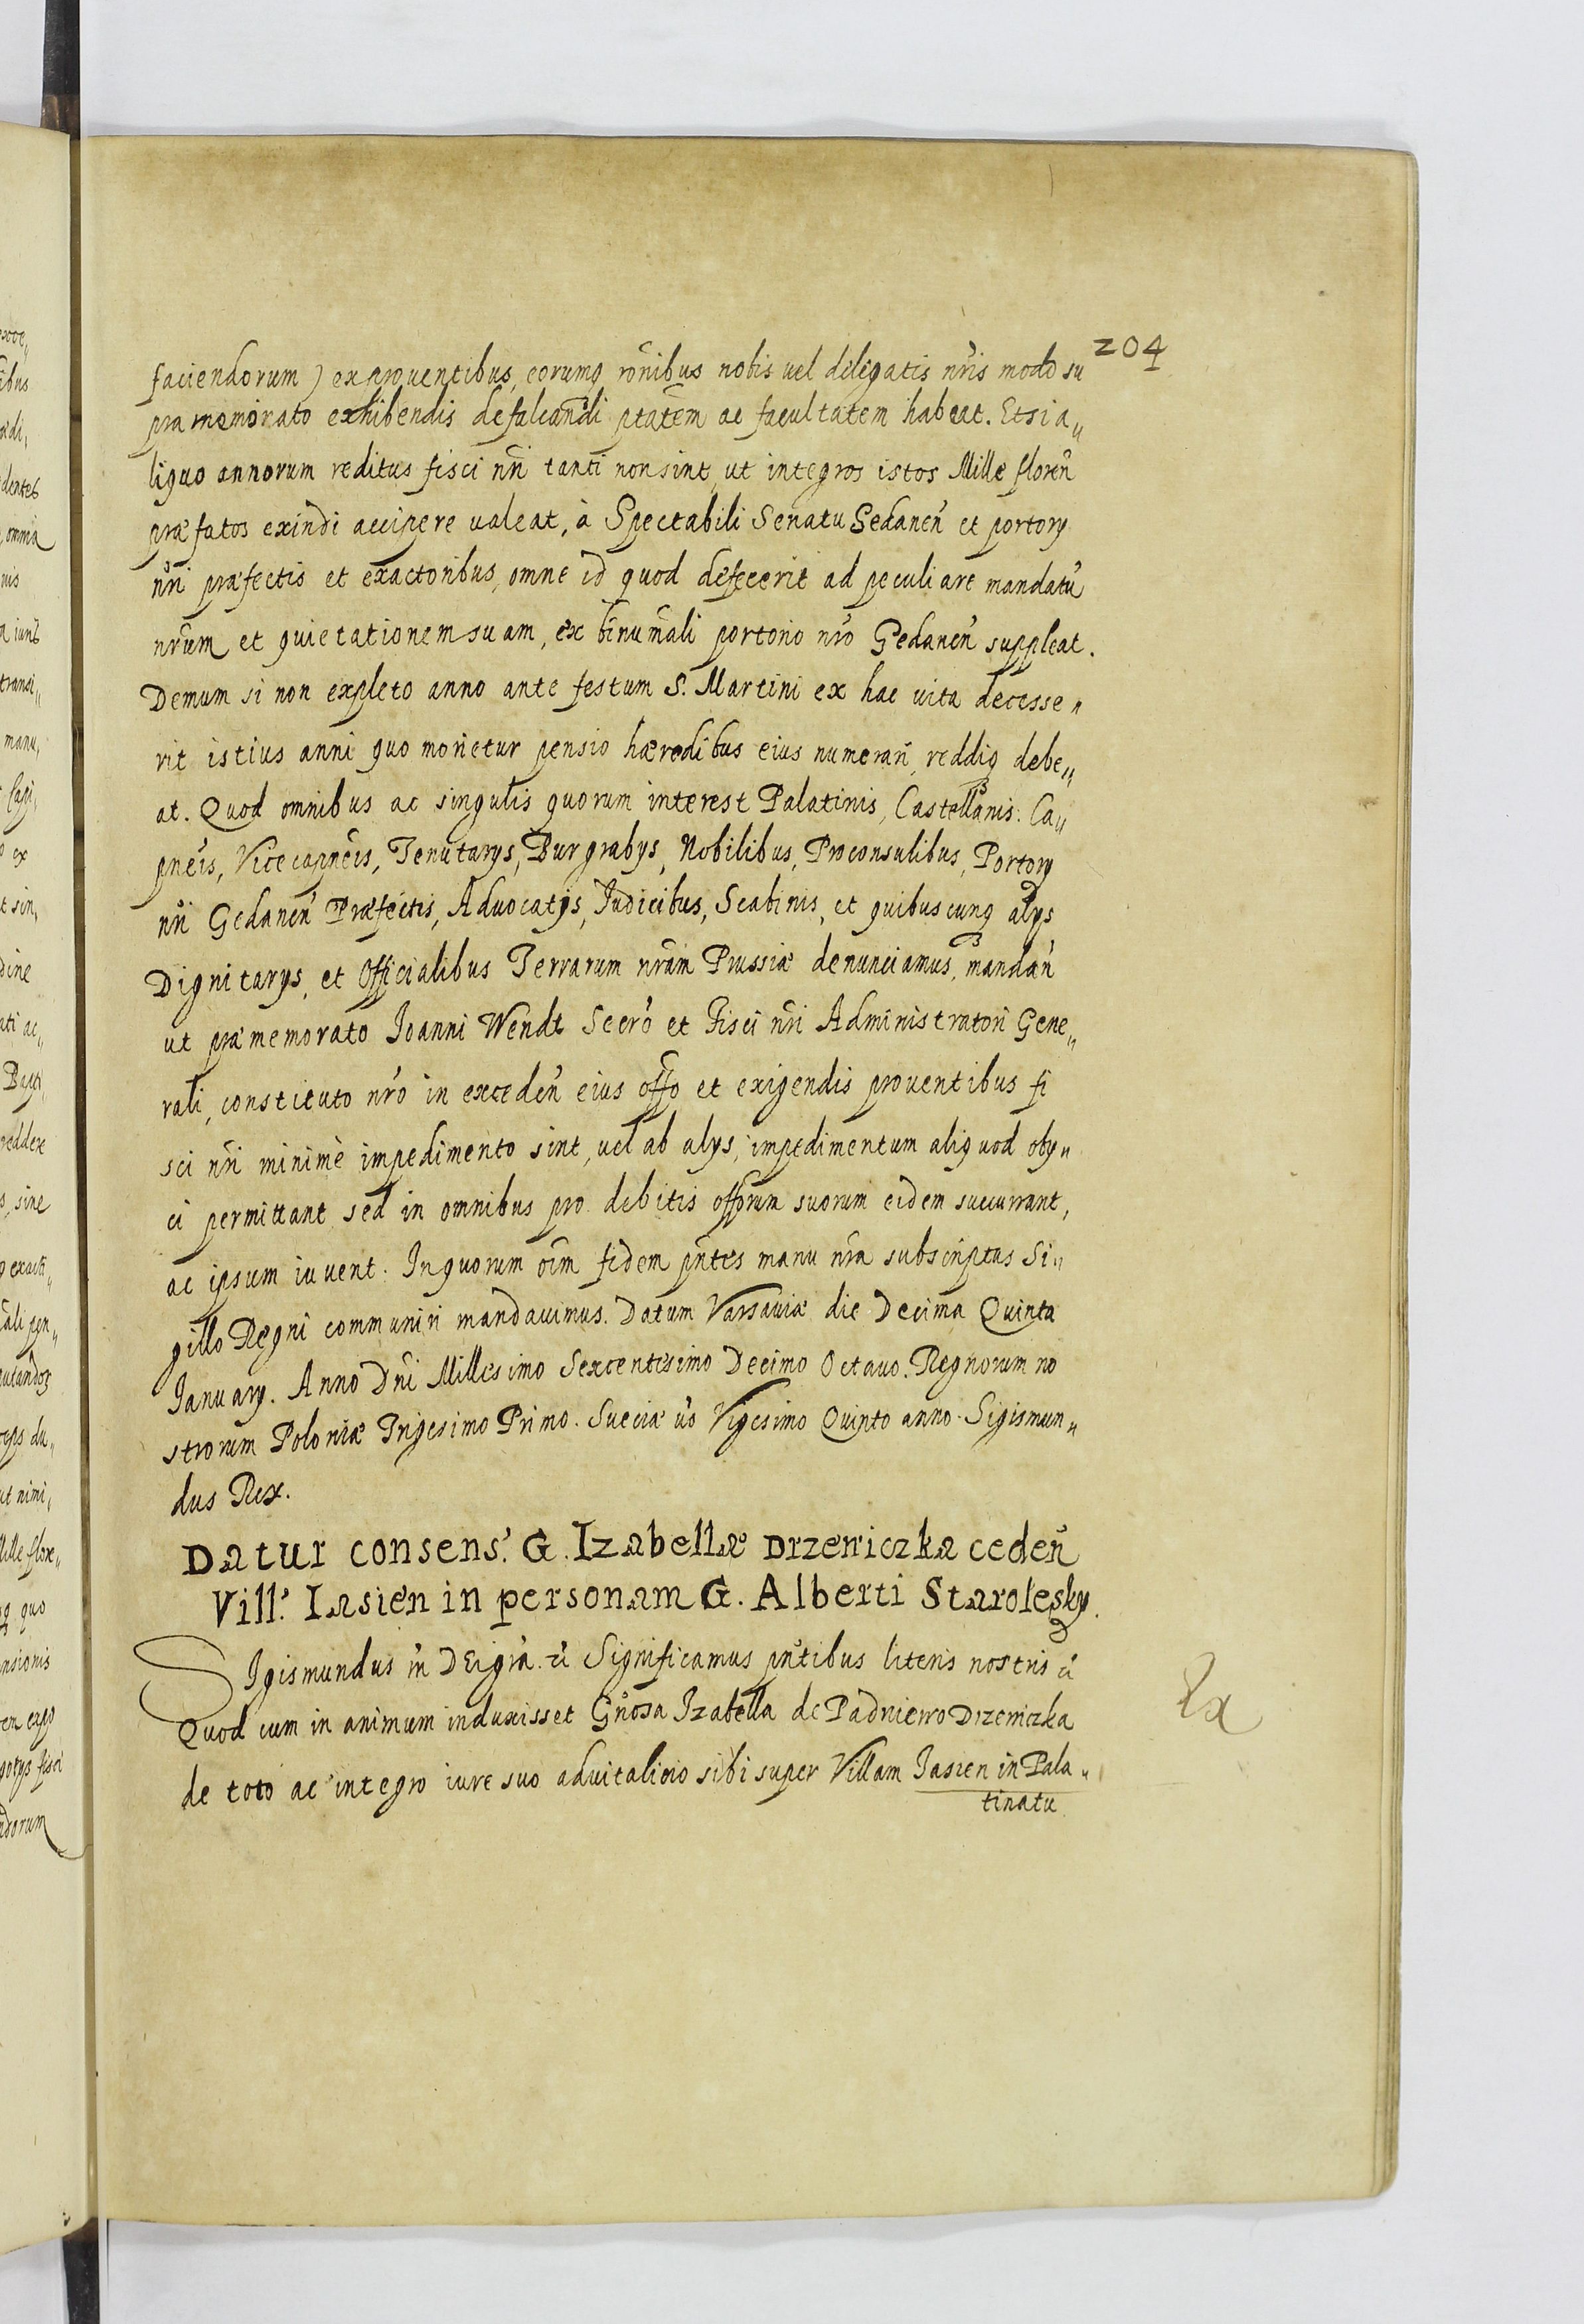 204
faciendorum) ex prouentibus, eorumq rőnibus nobis uel delegatis nr̃is modo su
pra memorato exhibendis defalcandi ptatẽm ac facultatem habeat. Et si a„
liquo annorum reditus fisci nr̃i tanti non sint, ut integros istos Mille floreñ
præfatos exindi accipere ualeat, à Spectabili Senatu Gedaneñ et portory
nr̃i præfectis et exactoribus, omne id quod defecerit ad peculiare mandatũ
nr̃um et quietationem suam, ex binum̃ali portorio nr̃o Gedaneñ suppleat.
Demum si non expleto anno ante festum S. Martini ex hac uita decesse„
rit istius anni quo morietur pensio hæredibus eius numerari, reddiq debe„
at. Quod omnibus ac singulis quorum interest Palatinis, Castellanis. Ca„
pneis, Vicecapneis, Tenutarys, Burgrabys, Nobilibus, Proconsulibus, Portory
nr̃i Gedaneñ Præfectis, Aduocatys, Judicibus, Scabinis, et quibuscunq alys
Dignitarys, et Officialibus Terrarum nr̃am Prussiæ denunciamus, mandañ
ut præmemorato Joanni Wendt Secrõ et Fisci nr̃i Administratori Gene„
rali, constituto nr̃o in excedeñ eius offo et exigendis prouentibus fi
sci nr̃i minimè impedimento sint, uel ab alys, impedimentum aliquod oby„
ci permittant sed in omnibus pro debitis offorum suorum eidem succurrant,
ac ipsum iuuent. In quorum oĩm fidem pñtes manu nr̃a subscriptas Si„
gillo Regni communiri mandauimus. Datum Varsauiæ die Decima Quinta
January. Anno Dñi Millesimo Sexcentesimo Decimo Octauo. Regnorum no
strorum Poloniæ Trigesimo Primo. Sueciæ ũo Vigesimo Quinto anno. Sigismun„
dus Rex.
Datur consens. G. Izabellæ Drzewiczka cedeñ
Vill. Iasień in personam G. Alberti Starolesky.
Sigismundus iii Dei gr̃a. ẽt Significamus pñtibus literis nostris ẽt
Quod cum in animum induxisset Gñosa Izabella de Padniewo Drzewiczka
de toto ac integro iure suo aduitalitio sibi super Villam Jasien in Pala„
tinatu
Ex